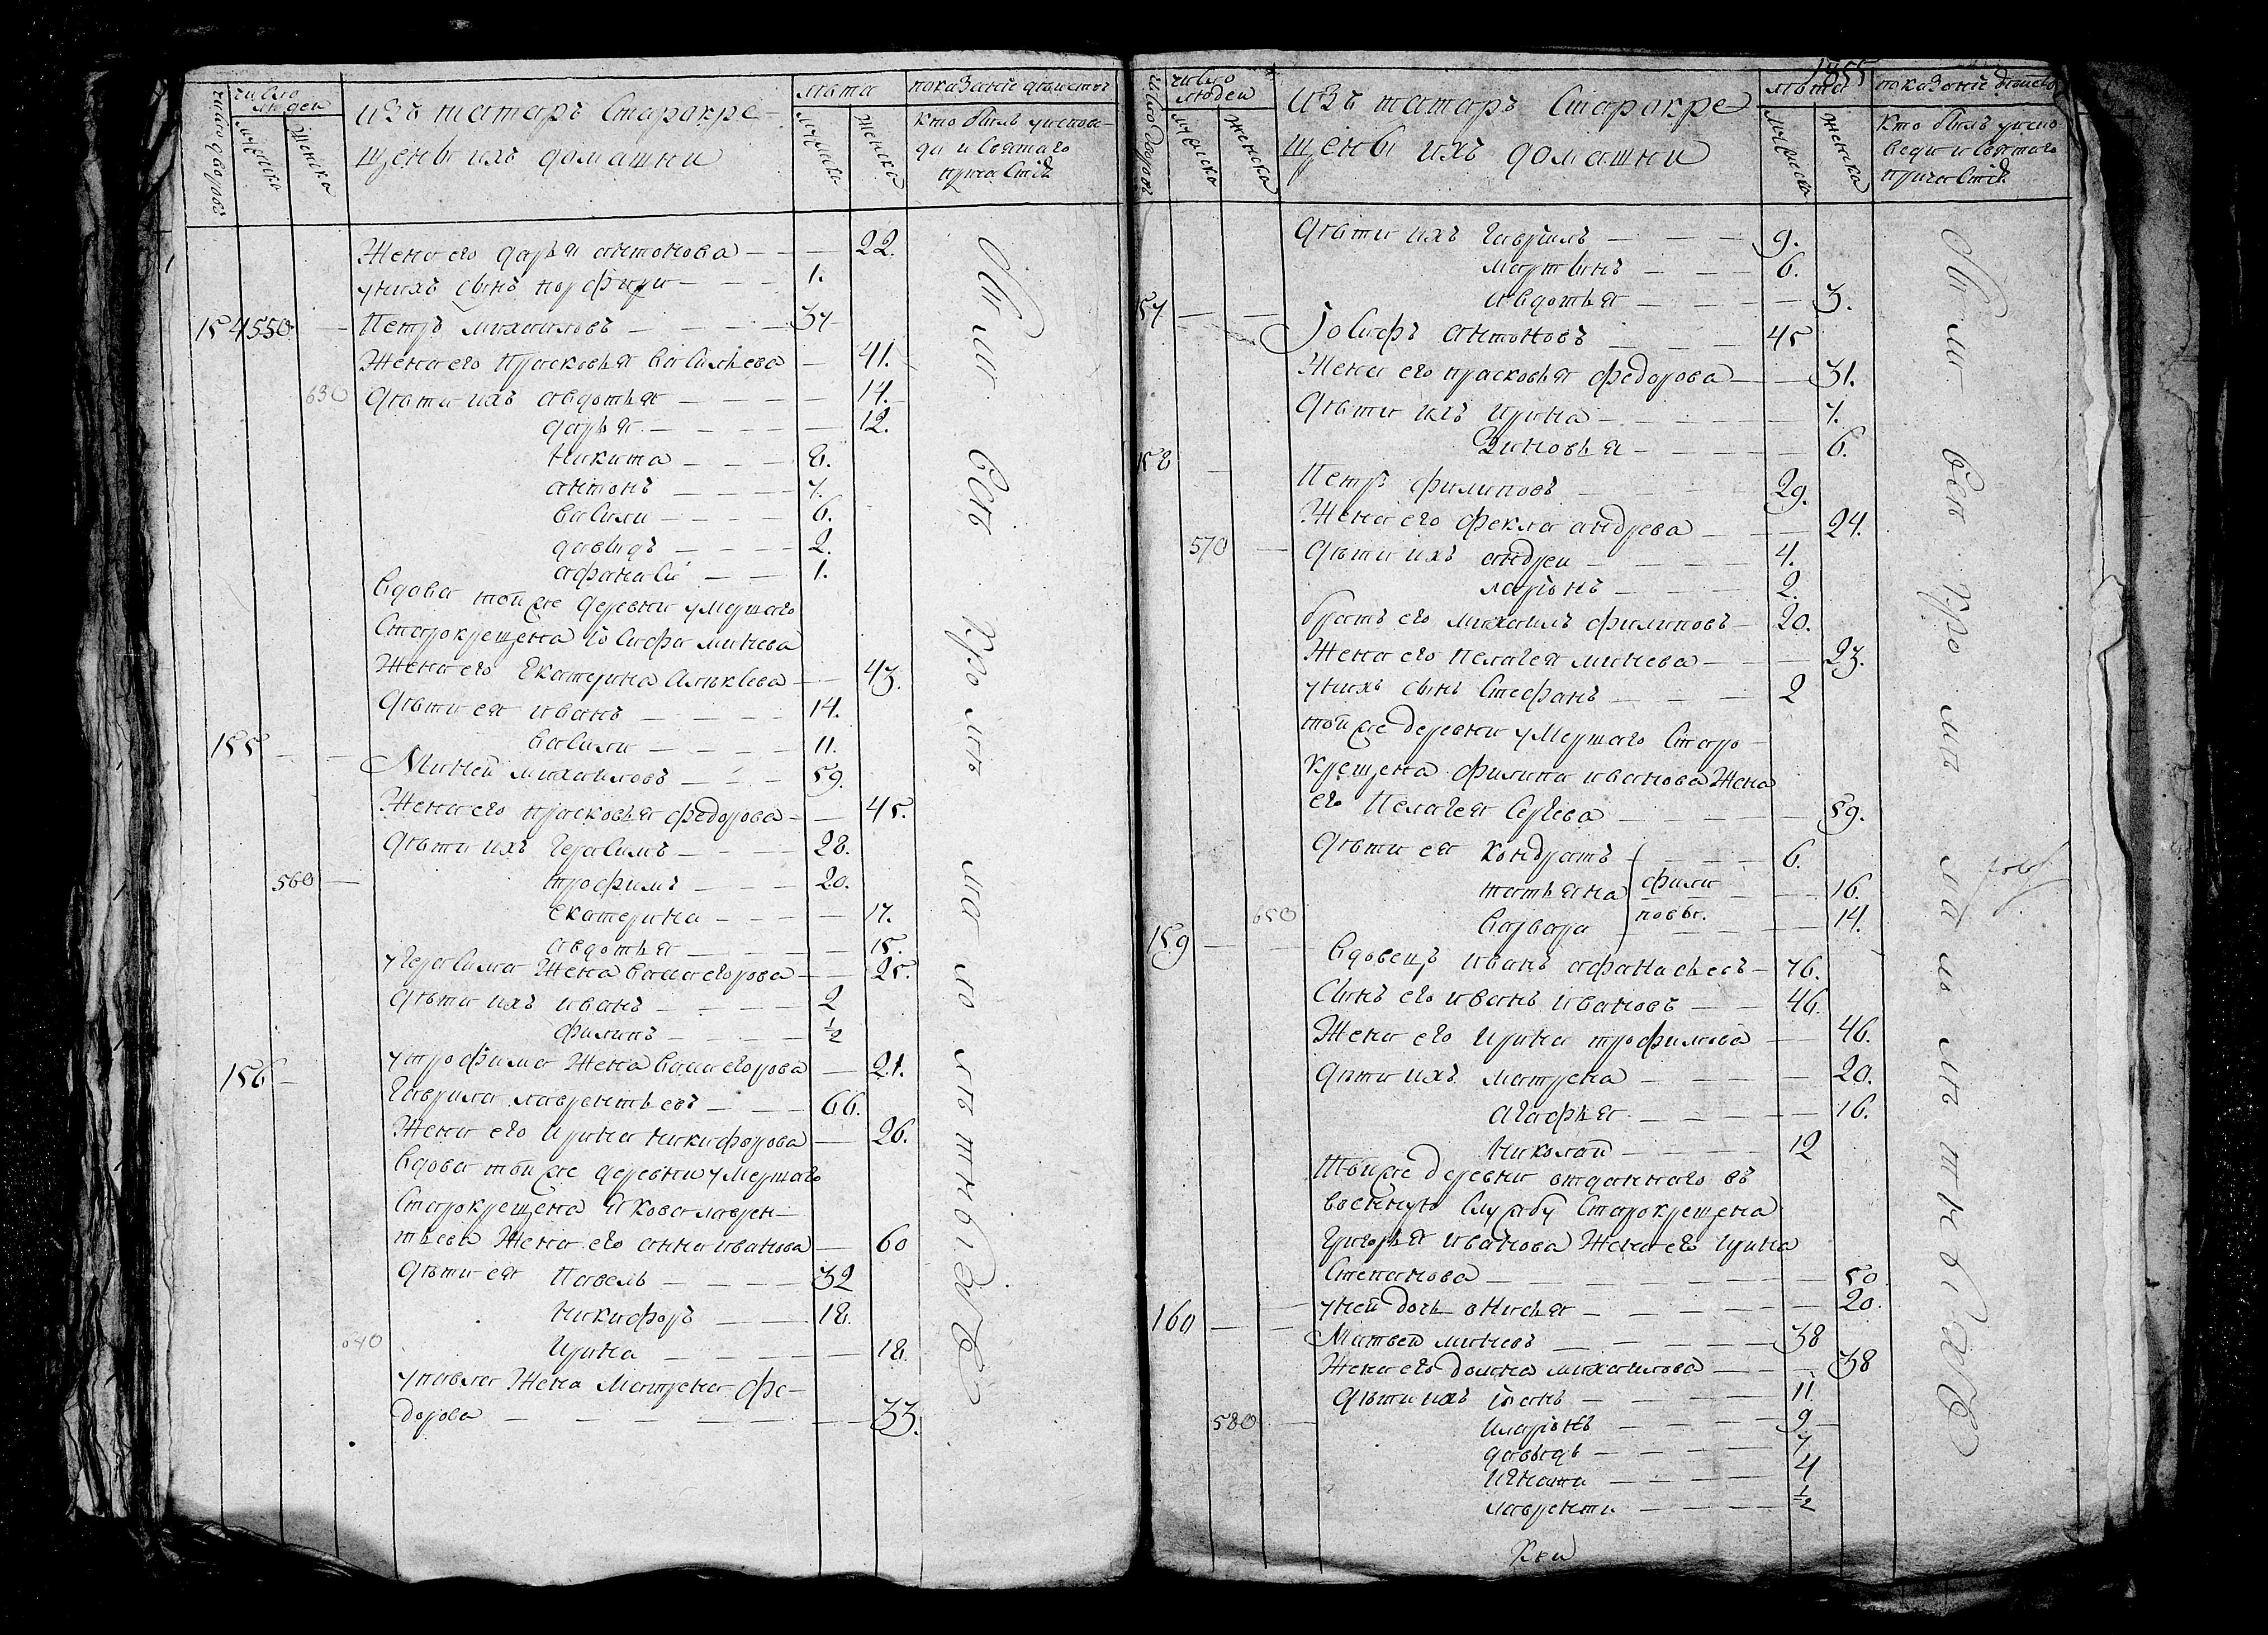 число дворовъ
число людеи
мужска
женска
изъ татаръ Старокре-
щены ихъ домашни
лѣта
мужска
женска
показание дѣиств
кто былъ уиспове-
ди и Святаго
причастїя
Жена его дарья антонова — — 22.
унихъ сынъ порфири — — 1.
154 550 — Петръ михаиловъ — — — 37
Жена его прасковья васильева — 41.
630 дѣти ихъ авдотья — — — — 14.
дарья — — — — — 12.
Никита — — — 8.
антонъ — — — 7.
василии — — — 6.
давидъ — — — 2.
афанаси — — 1.
вдова той же деревни умершаго
Старокрещена Іосифа минева
Жена его екатерина алексѣева — — 43.
дѣти ея иванъ — — — — 14.
василии — — — — 11.
155 — — Миней михаиловъ — — — 59.
Жена его прасковья федорова — — 45.
дѣти ихъ герасимъ — — — 28.
560 — трофимъ — — — 20.
екатерина — — — — 17.
авдотья — — — — 15.
угерасима Жена васса егорова — — 25.
дѣти ихъ иванъ — — — — 2
филипъ — — — — ½
утрофима Жена васса егорова — 21.
156 — гаврила лаврентьевъ — — — 66.
Жена его ирина никифорова — — 26.
вдова той же деревни умершаго
Старокрещена Якова лаврен-
тьева Жена его анна иванова — 60
дѣти ея павелъ — — — — 32
никифоръ — — — 18.
640 ирина — — — — — 18.
упавла Жена матрена фе-
дорова — — — — — — — 33.
Оныи всѣ
1855
число дворовъ
число людеи
мужска
женска
изъ татаръ Старокре
щены ихъ домашни
лѣта
мужска
женска
показание дѣиств
кто былъ уиспо
веди и Святаго
причастїя
дѣти ихъ гаврилъ — — — — 9.
мартынъ — — — 6.
авдотья — — — — — 3.
157 — — Іосифъ антоновъ — — — 45
Жена его прасковья федорова — — 31.
дѣти ихъ ирина — — — — — 7.
Зиновья — — — — — 6.
158 — Петръ филиповъ — — — — 29.
Жена его фекла андрева — — — 24.
570 — дѣти ихъ андреи — — — — 4.
ларїонъ — — — — 2.
братъ его михаилъ филиповъ — 20.
Жена его пелагея минева — — — 23.
унихъ сынъ Стефанъ — — — 2
той же деревни умершаго Старо-
крещена филипа иванова Жена
его Пелагея Сергева — — — — — 59.
дѣти ея кондратъ — — — — 6.
татьяна фили — — — 16.
650 варвара повы. — — — 14.
159 — — вдовецъ иванъ афанасьевъ — 76.
сынъ его иванъ ивановъ — — 46.
Жена его ирина трофимова — — 46.
дѣти ихъ матрена — — — — 20.
агафья — — — — — 16.
николаи — — — — 12
той же деревни отданнаго въ
военную Службу Старокрещена
григорья иванова Жена его ирина
Степанова — — — — — — — 50
уней дочь анисья — — — — — 20.
160 — — Матвеи миневъ — — — — 38
Жена его домна михаилова — — — 38
дѣти ихъ іванъ — — — — 11
580 — иларїонъ — — — — 9
давыдъ — — — — 7
игнати — — — — 4
лаврентии — — — — ½
Оныи всѣ